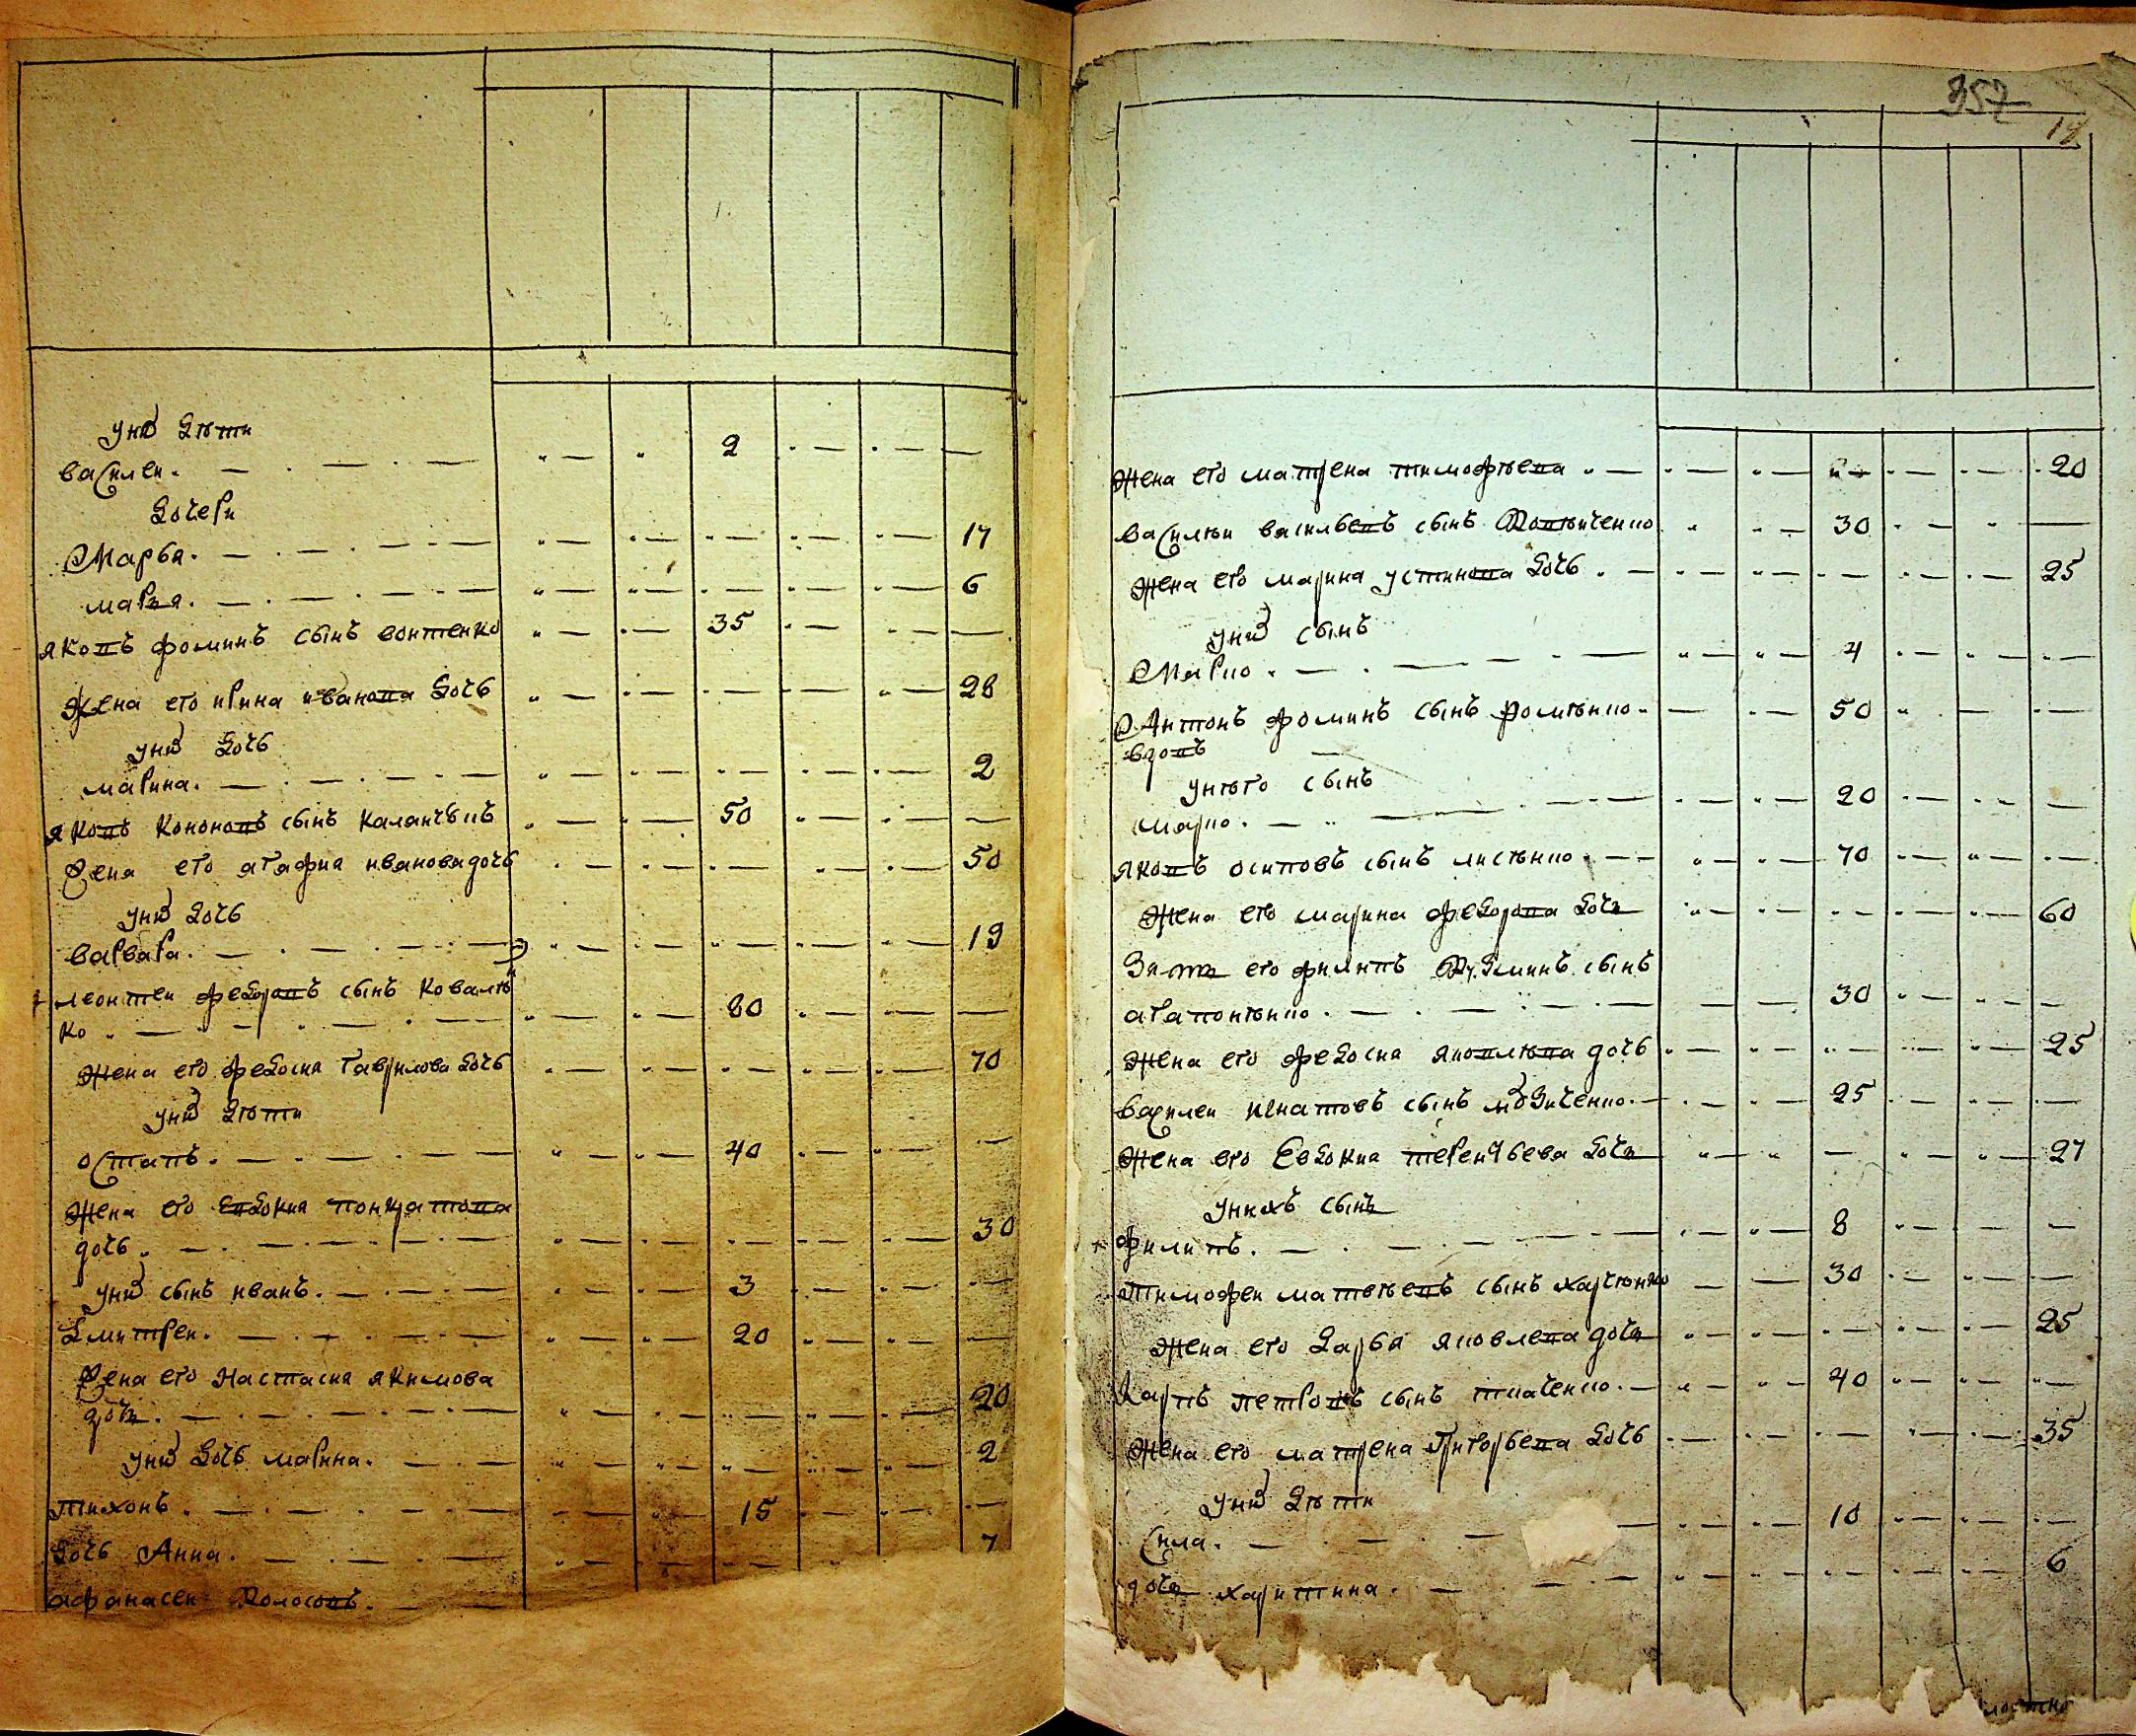 У них дѣти
Василеи. 2
Дочери
Марѳа. 17
марья. 6
яковъ фоминъ сынъ воитенко 35
жена его ирина иванова дочь 28
у них дочь
марина. 2
яковъ кононовъ сынъ каланчъ 50
жена его агафиа иванова дочь 50
у них дочь
варвара. 19
леонтеи федоровъ сынъ ковалѣ
ко 80
жена его федосиа гаврилова дочь 70
у них дѣти
остапъ. 40
жена его евдокиа понкратова
дочь. 30
у них сынъ иванъ. 3
дмитреи. 20
жена его настасиа якимова
дочь. 20
у них дочь марина. 2
тихонъ. 15
дочь Анна. 7
афанасеи колосовъ.
357
18
жена его матрена тимофѣева 20
василѣи васильевъ сынъ 30
жена его марина устинова дочь 25
у них сынъ
Марко. 4
Антонъ фоминъ сынъ 50
вдовъ
у нѣго сынъ
марко. 20
яковъ осиповъ сынъ лисѣнко 70
жена его марина федорова дочь 60
Зять его филипъ кузминъ сынъ
агапонѣнко. 30
жена его федосиа яковлѣва дочь 25
василеи игнатовъ сынъ 25
жена его Евдокиа терентьева дочь 27
у нихъ сынъ
филипъ. 8
тимофеи матвѣевъ сынъ харчѣнко 30
жена его дарьа яковлева дочь 25
карпъ петровъ сынъ ткаченко. 40
жена его матрена григорьева дочь 35
у них дѣти
Сила. 10
дочь харитина. 6